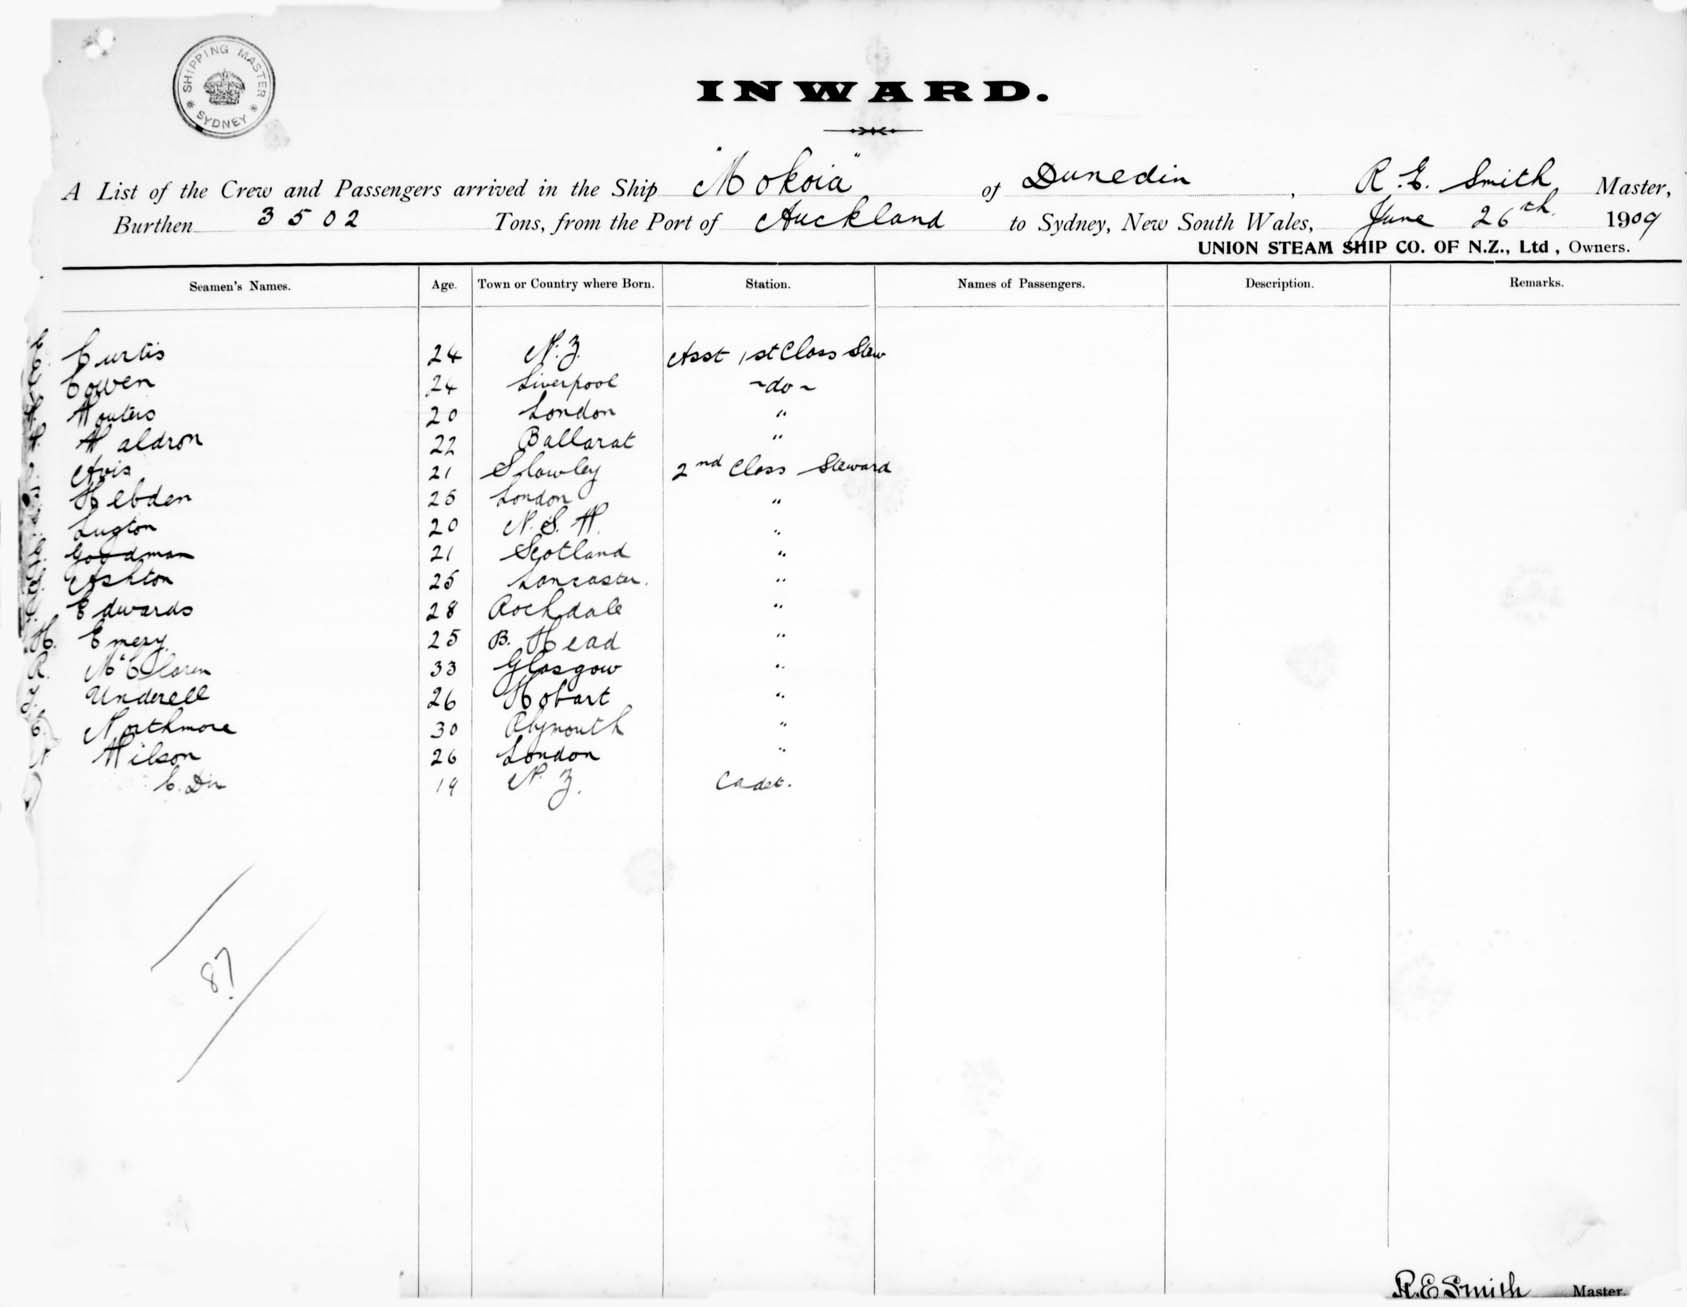 SHIPPING MASTER
SYDNEY
INWARD.
A List of the Crew and Passengers arrived in the Ship "Mokoia" of Dunedin, R. E. Smith Master,
Burthen 3502 Tons, from the Port of Auckland to Sydney, New South Wales, June 26th 1909
UNION STEAM SHIP CO. OF N.Z., Ltd, Owners.
Seamen's Names. Age. Town or Country where Born. Station. Names of Passengers. Description. Remarks.
Curtis 24 N.Z. Asst 1st Class Stew
Cowen 24 Liverpool ~do~
Wouters 20 London "
Waldron 22 Ballarat "
Avis 21 2nd Class Steward
Hebden 25 London "
Lugton 20 N.S.W. "
Goodman 21 Scotland "
Ashton 25 Lancaster. "
Edwards 28 Rochdale "
H. Emery 25 B. Head "
R. McClaren 33 Glasgow "
Underell 26 Hobart "
Northmore 30 Plymouth "
Wilson 26 London "
19 N.Z. Cadet.
87
R.E Smith Master.